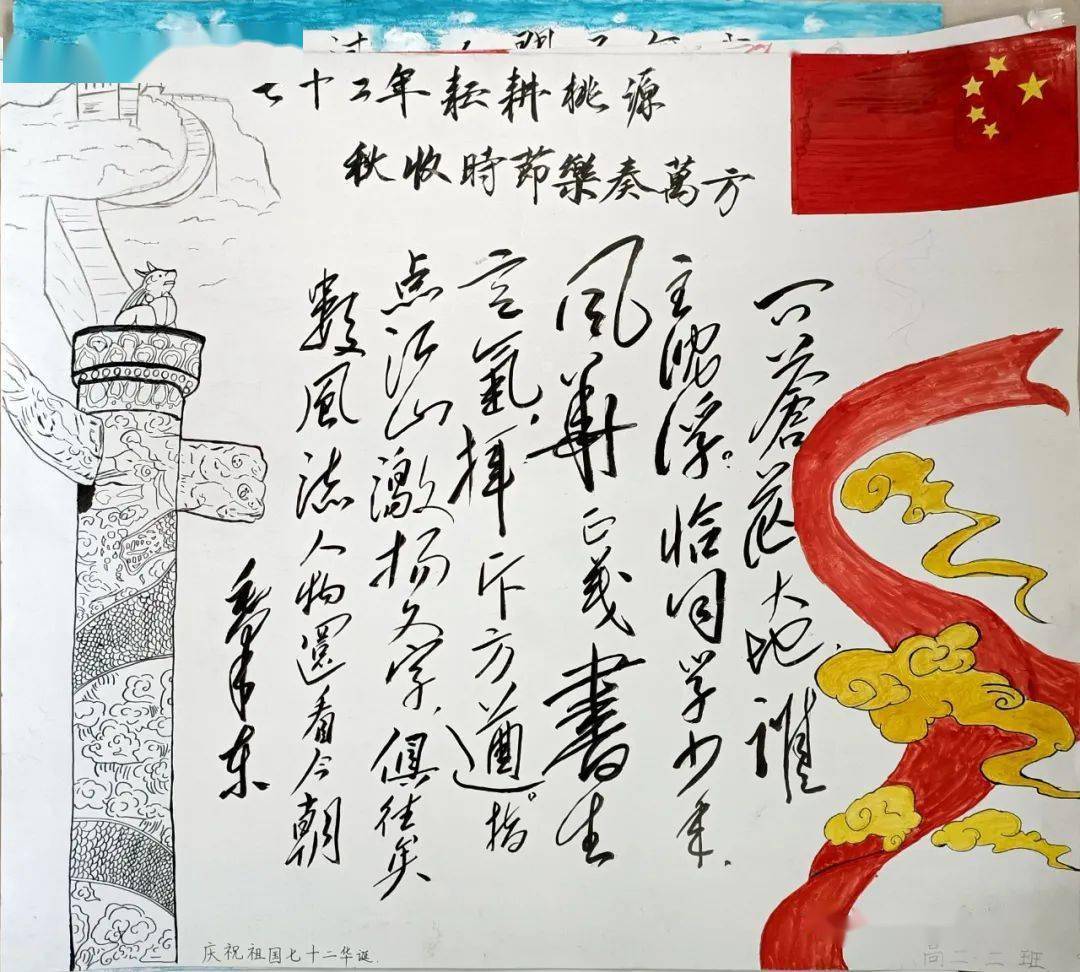 七十二年耘耕桃源
秋收時節樂奏萬方
问蒼茫大地,誰
主沉浮。恰同学少年,
风華正茂書生
意氣,揮斥方遒。指
点江山激扬文字,俱往矣
數風流人物還看今朝
毛泽东
庆祝祖国七十二华诞.
高二·二班